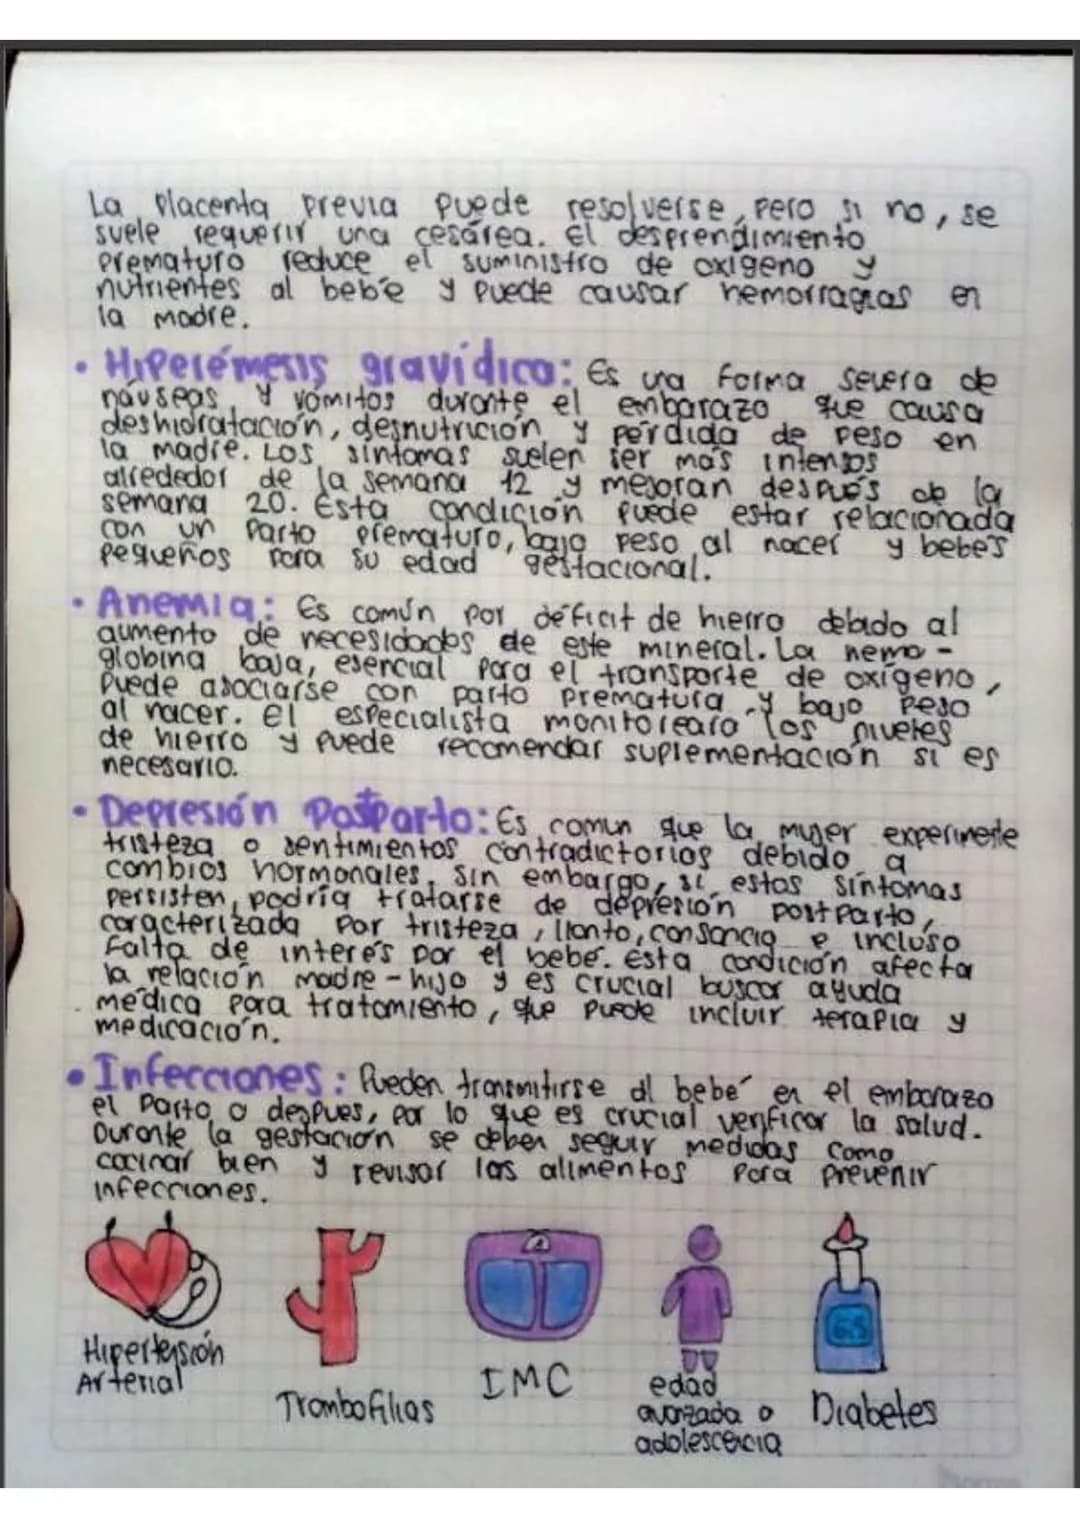 La placenta previa puede resolverse, pero si no, se
suele requerir una cesárea. El desprendimiento
prematuro reduce el suministro de oxigeno y
nutrientes al bebé y puede causar hemorragias en
la madre.
• Hiperémesis gravídica: Es una forma severa de
náuseas y vómitos durante el embarazo que causa
deshidratación, desnutrición y pérdida de peso en
la madre. Los síntomas suelen ser más intensos
alrededor de la semana 12 y mejoran después de la
semana 20. Esta condición puede estar relacionada
con un parto prematuro, bajo peso al nacer y bebés
pequeños para su edad gestacional.
• Anemia: Es común por déficit de hierro debido al
aumento de necesidades de este mineral. La hemo-
globina baja, esencial para el transporte de oxígeno,
puede asociarse con parto prematura y bajo peso
al nacer. El especialista monitoreara los niveles
de hierro y puede recomendar suplementación si es
necesario.
• Depresión Postparto: Es comun que la mujer experimente
tristeza o sentimientos contradictorios debido a
cambios hormonales. Sin embargo, si estos síntomas
persisten, podría tratarse de depresión postparto,
caracterizada por tristeza, llanto, cansancio e incluso
falta de interés por el bebé. Esta condición afecta
la relación madre-hijo y es crucial buscar ayuda
médica para tratamiento, que puede incluir terapia y
medicación.
• Infecciones: Pueden transmitirse al bebé en el embarazo
el parto o despues, por lo que es crucial verificar la salud.
Durante la gestación se deben seguir medidas como
cocinar bien y revisar los alimentos para prevenir
infecciones.
65
Hipertensión
Arterial
Trombofilias
IMC
edad
avanzada o
adolescencia
Diabetes